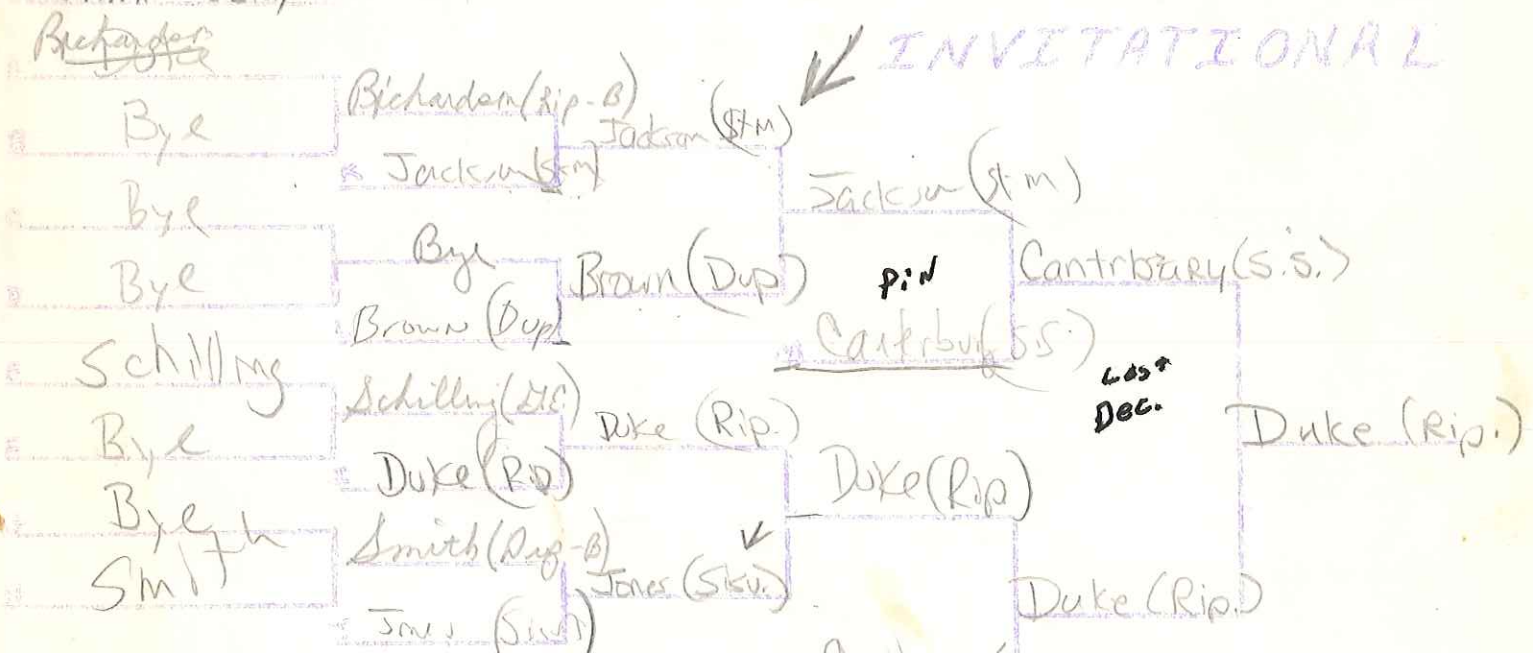 INVITATIONAL
Bye
Bye
Bye
Schilling
Bye
Bye
Smith
Richardson (Rip-B)
Jackson (St m)
Bye
Brown (Dup)
Schilling
Duke (Rip)
Smith
Jones
Jackson (St M)
Brown (Dup)
Duke (Rip.)
Jones (Sisv.)
Jackson (St m)
PiN
(S.S.)
Duke (Rip)
Cantrbzary (S.S.)
Lost
Dec.
Duke (Rip.)
Duke (Rip.)